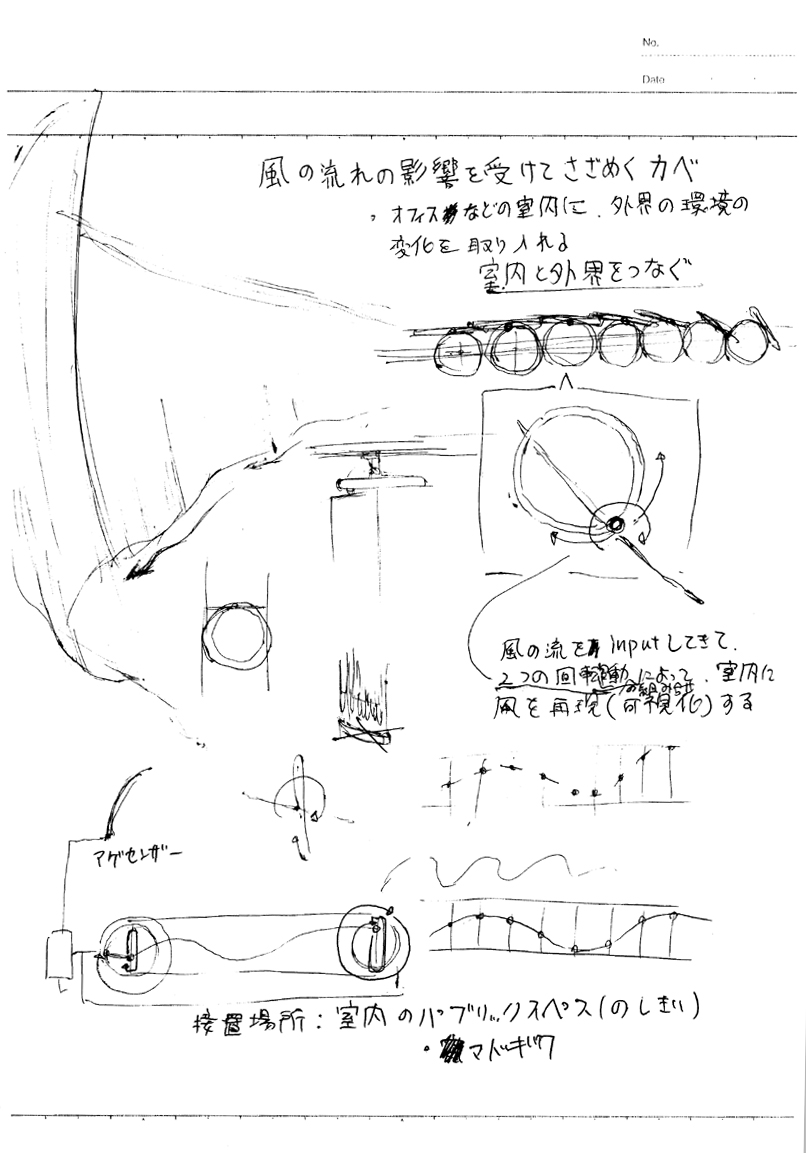 No.
Date
風の流れの影響を受けてさざめくカベ
・オフィスなどの室内に、外界の環境の
変化を取り入れる
室内と外界をつなぐ
風の流を inputしてきて、
2つの回転動の組み合せによって、室内に
風を再現(可視化)する
アゲセンサー
接置場所:室内のパブリックスペス(のしきい)
・マドギワ